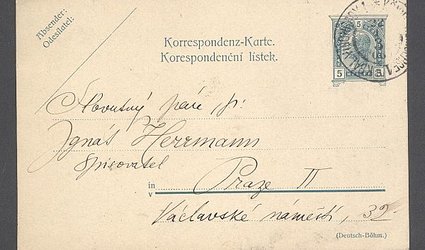 Absender:
Odesílatel:
Korrespondenz-Karte.
Korespondenční lístek.
5 5
Slovutný páně, p:
Ignát Herrmann
spisovatel
in
v
Praze II
Václavské náměstí, 32.
(Deutsch-Böhm.)